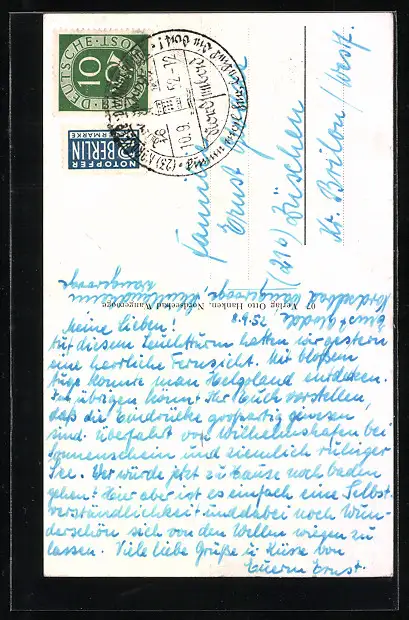 DEUTSCHE POST
10
NOTOPFER
2 BERLIN
STEUERMARKE
10.9.52-12
Familie
Ernst
(21b) Züschen
Kr. Brilon/Westf.
97 Verlag Otto Hanken, Nordseebad Wangerooge
Nordseebad Wangerooge,
8.9.52
Meine Lieben!
Auf diesem Leuchtturm hatten wir gestern
eine herrliche Fernsicht. Mit bloßem
Auge konnte man Helgoland entdecken.
Im übrigen könnt Ihr Euch vorstellen,
daß die Eindrücke großartig gewesen
sind. Überfahrt von Wilhelmshafen bei
Sonnenschein und ziemlich ruhiger
See. Wer würde jetzt zu Hause noch baden
gehen? Hier aber ist es einfach eine Selbst-
verständlichkeit und dabei noch wun-
derschön sich von den Wellen wiegen zu
lassen. Viele liebe Grüße u. Küsse von
Euerm Ernst.